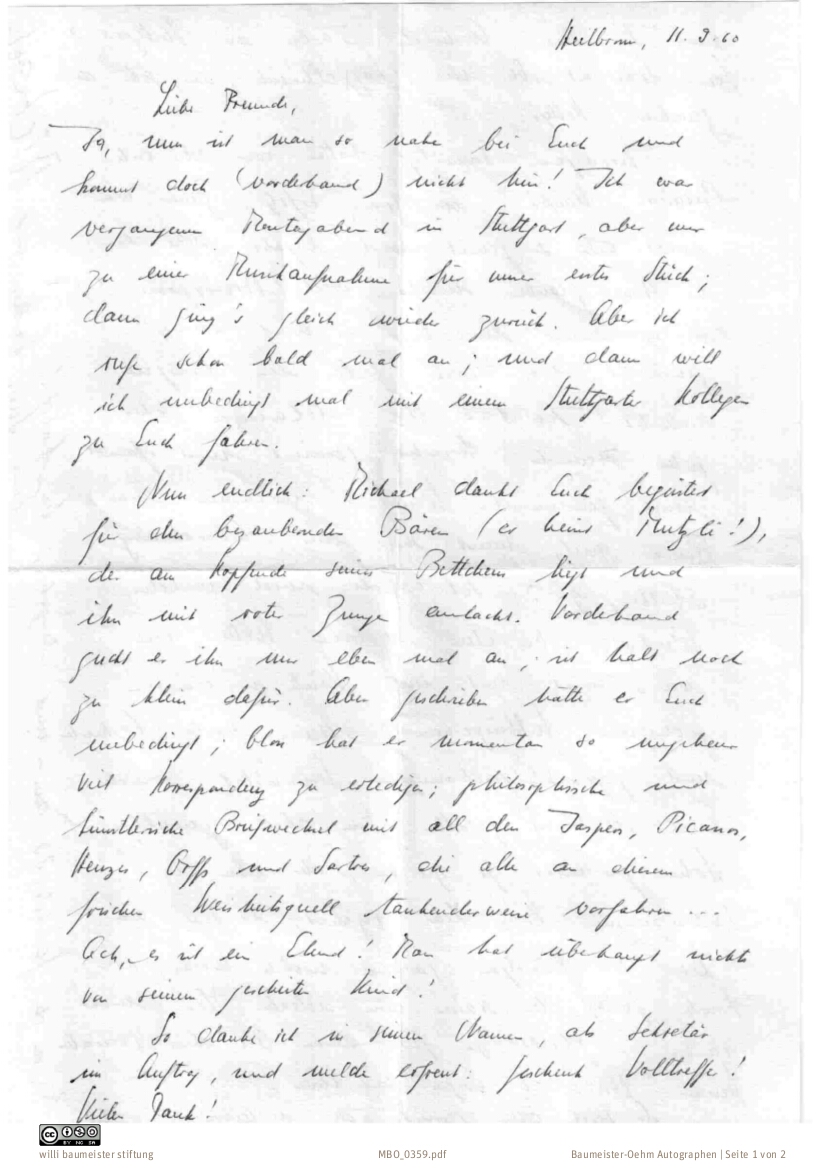 Heilbronn, 11.9.60
Liebe Freunde,
Ja, nun ist man so nahe bei Euch und
kommt doch (vorderhand) nicht hin! Ich war
vergangenen Montagabend in Stuttgart, aber nur
zu einer Musikaufnahme für unser erstes Stück;
dann ging's gleich wieder zurück. Aber ich
rufe schon bald mal an; und dann will
ich unbedingt mal mit einem Stuttgarter Kollegen
zu Euch fahren.
Nun endlich: Michael dankt Euch begeistert
für den bezaubernden Bären (er heisst Mutzli!),
der am Kopfende seines Bettchens liegt und
ihn mit roter Zunge anlacht. Vorderhand
guckt er ihn nur eben mal an; ist halt noch
zu klein dafür. Aber geschrieben hätte er Euch
unbedingt; bloss hat er momentan so ungeheuer
viel Korrespondenz zu erledigen; philosophische und
künstlerische Briefwechsel mit all den Jaspers, Picassos,
Henzes, Orffs und Sartres, die alle an diesem
frischen Weisheitsquell tankenderweise vorfahren...
Ach, es ist ein Elend! Man hat überhaupt nichts
von seinem gescheiten Kind!
So danke ich in seinem Namen, als Sekretär
im Auftrag, und melde erfreut: Geschenk Volltreffer!
Vielen Dank!
willi baumeister stiftung
MBO_0359.pdf
Baumeister-Oehm Autographen | Seite 1 von 2